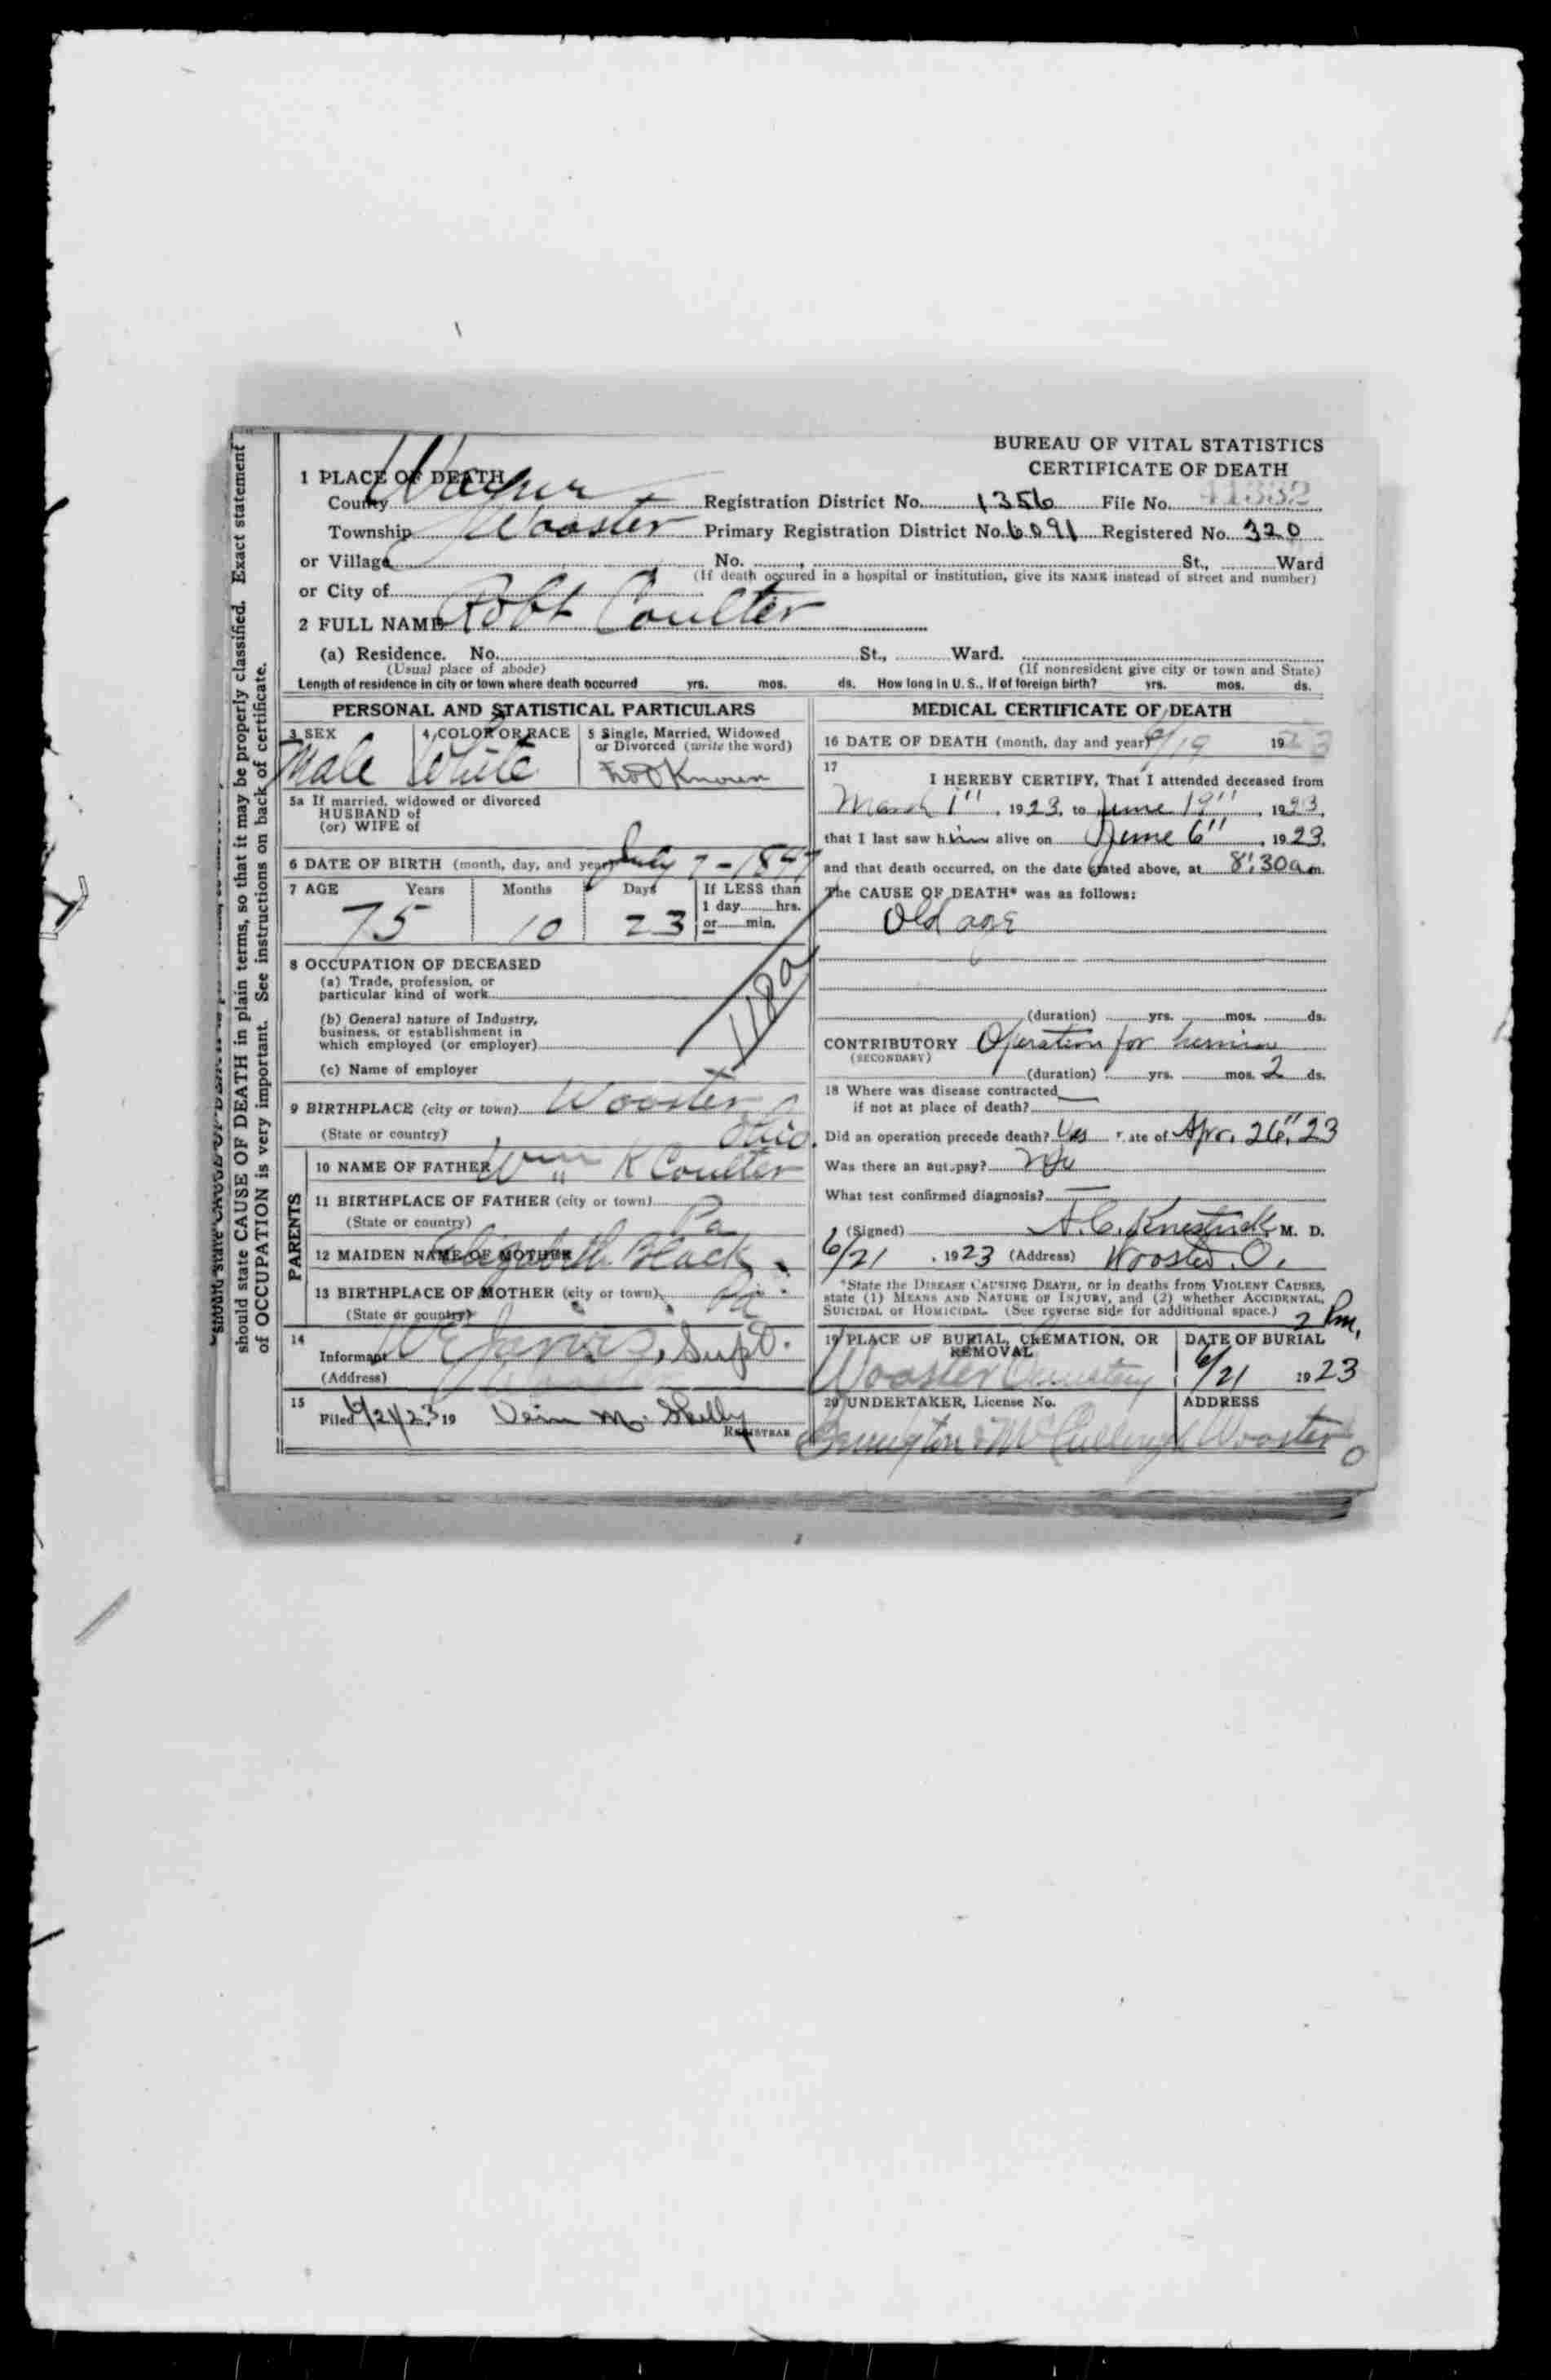 BUREAU OF VITAL STATISTICS
CERTIFICATE OF DEATH
1 PLACE OF DEATH
County Wayne Registration District No. 1356 File No. 41332
Township Wooster Primary Registration District No. 6091 Registered No. 320
or Village No. St., Ward
(If death occured in a hospital or institution, give its NAME instead of street and number)
or City of
2 FULL NAME Robt Coulter
(a) Residence. No. St., Ward.
(Usual place of abode) (If nonresident give city or town and State)
Length of residence in city or town where death occurred yrs. mos. ds. How long in U. S., if of foreign birth? yrs. mos. ds.
PERSONAL AND STATISTICAL PARTICULARS
3 SEX 4 COLOR OR RACE 5 Single, Married, Widowed
or Divorced (write the word)
Male White Not Known
5a If married, widowed or divorced
HUSBAND of
(or) WIFE of
6 DATE OF BIRTH (month, day, and year) July 7 - 1847
7 AGE Years Months Days If LESS than
1 day hrs.
75 10 23 or min.
8 OCCUPATION OF DECEASED
(a) Trade, profession, or
particular kind of work
(b) General nature of Industry,
business, or establishment in
which employed (or employer)
(c) Name of employer
118a
9 BIRTHPLACE (city or town) Wooster
(State or country) Ohio.
PARENTS
10 NAME OF FATHER Wm K Coulter
11 BIRTHPLACE OF FATHER (city or town)
(State or country) Pa
12 MAIDEN NAME OF MOTHER Elizabeth Black
13 BIRTHPLACE OF MOTHER (city or town) Pa
(State or country)
14
Informant W E Jarvis, Supt.
(Address) Wooster
15
Filed 6/21/23 19 M. Skelly
REGISTRAR
MEDICAL CERTIFICATE OF DEATH
16 DATE OF DEATH (month, day and year) 6/19 1923
17
I HEREBY CERTIFY, That I attended deceased from
March 1", 1923, to June 19", 1923,
that I last saw him alive on June 6", 1923,
and that death occurred, on the date stated above, at 8:30 a m.
The CAUSE OF DEATH* was as follows:
Old age
(duration) yrs. mos. ds.
CONTRIBUTORY Operation for hernia
(SECONDARY)
(duration) yrs. mos. 2 ds.
18 Where was disease contracted
if not at place of death?
Did an operation precede death? Yes Date of Apr. 26", 23
Was there an autopsy? No
What test confirmed diagnosis?
(Signed) A. C. Knestrick M. D.
6/21, 1923 (Address) Wooster, O.
*State the DISEASE CAUSING DEATH, or in deaths from VIOLENT CAUSES,
state (1) MEANS AND NATURE OF INJURY, and (2) whether ACCIDENTAL,
SUICIDAL or HOMICIDAL. (See reverse side for additional space.)
2 Pm,
19 PLACE OF BURIAL, CREMATION, OR DATE OF BURIAL
REMOVAL
Wooster Cemetery 6/21 1923
20 UNDERTAKER, License No. ADDRESS
& McCullough Wooster O
should state CAUSE OF DEATH in plain terms, so that it may be properly classified. Exact statement
of OCCUPATION is very important. See instructions on back of certificate.